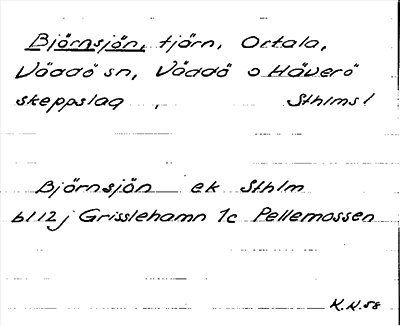 Björnsjön, tjärn, Ortala,
Väddö sn, Väddö o Häverö
skeppslag, Sthlms l
Björnsjön ek Sthlm
bl 12 j Grisslehamn 1c Pellemossen
K.N. 58